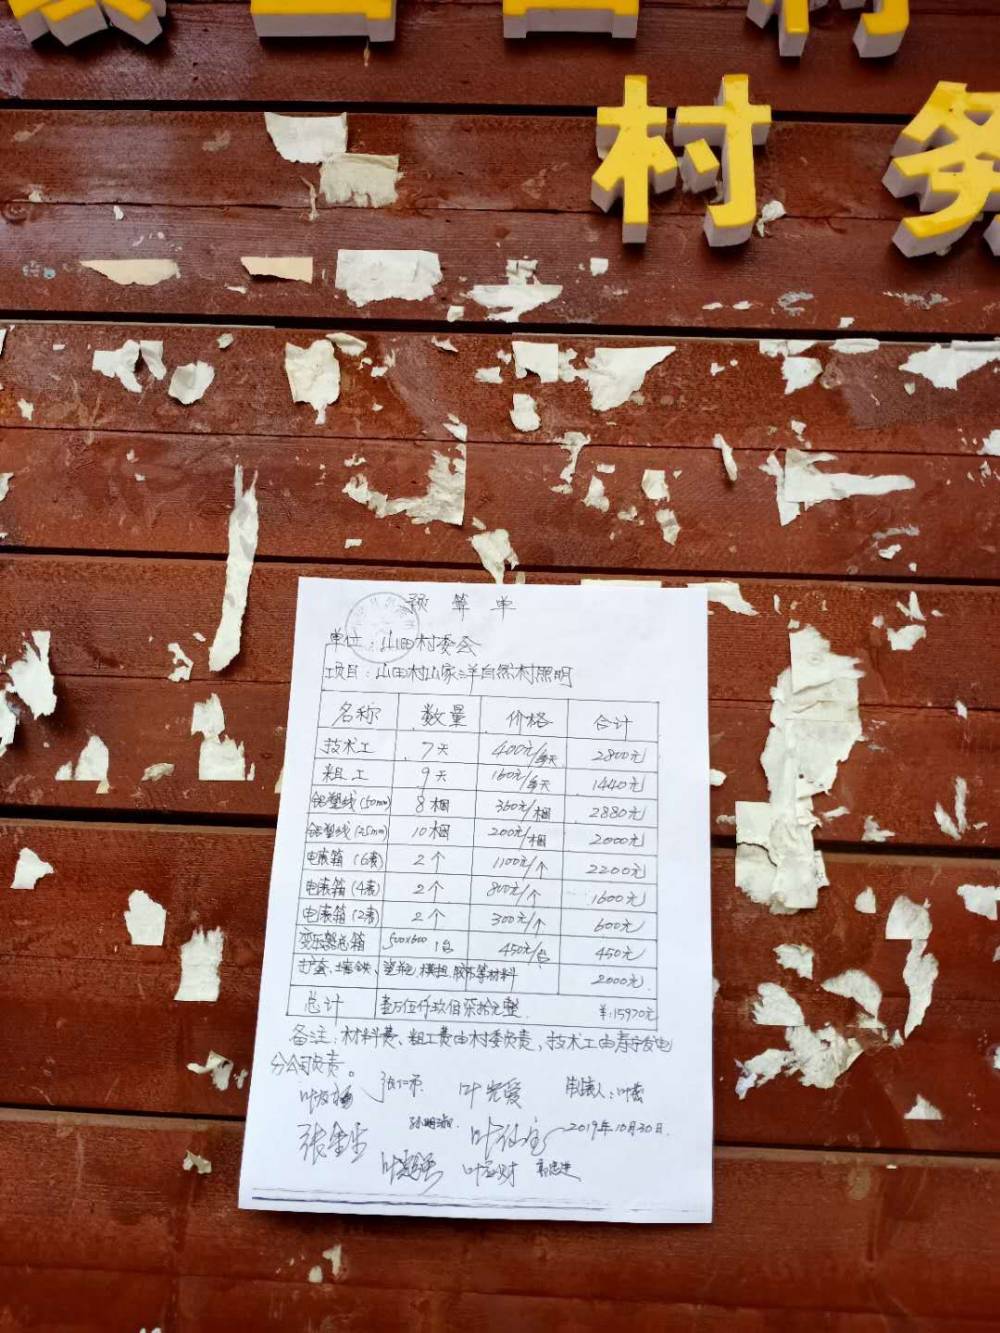 村
村务
预算单
单位：山田村委会
项目：山田村山家洋自然村照明
名称 数量 价格 合计
技术工 7天 400元/每天 2800元
粗工 9天 160元/每天 1440元
铝塑线(50mm) 8梱 360元/梱 2880元
铝塑线(25mm) 10梱 200元/梱 2000元
电表箱(6表) 2个 1100元/个 2200元
电表箱(4表) 2个 800元/个 1600元
电表箱(2表) 2个 300元/个 600元
变压器总箱 500×600 1台 450元/台 450元
护套、墙铁、 横担、胶布等材料 2000元
总计 壹万伍仟玖佰柒拾元整 ¥:15970元
备注：材料费、粗工费由村委负责、技术工由寿宁发电
分公司负责。
制表人：叶
2019年10月30日.